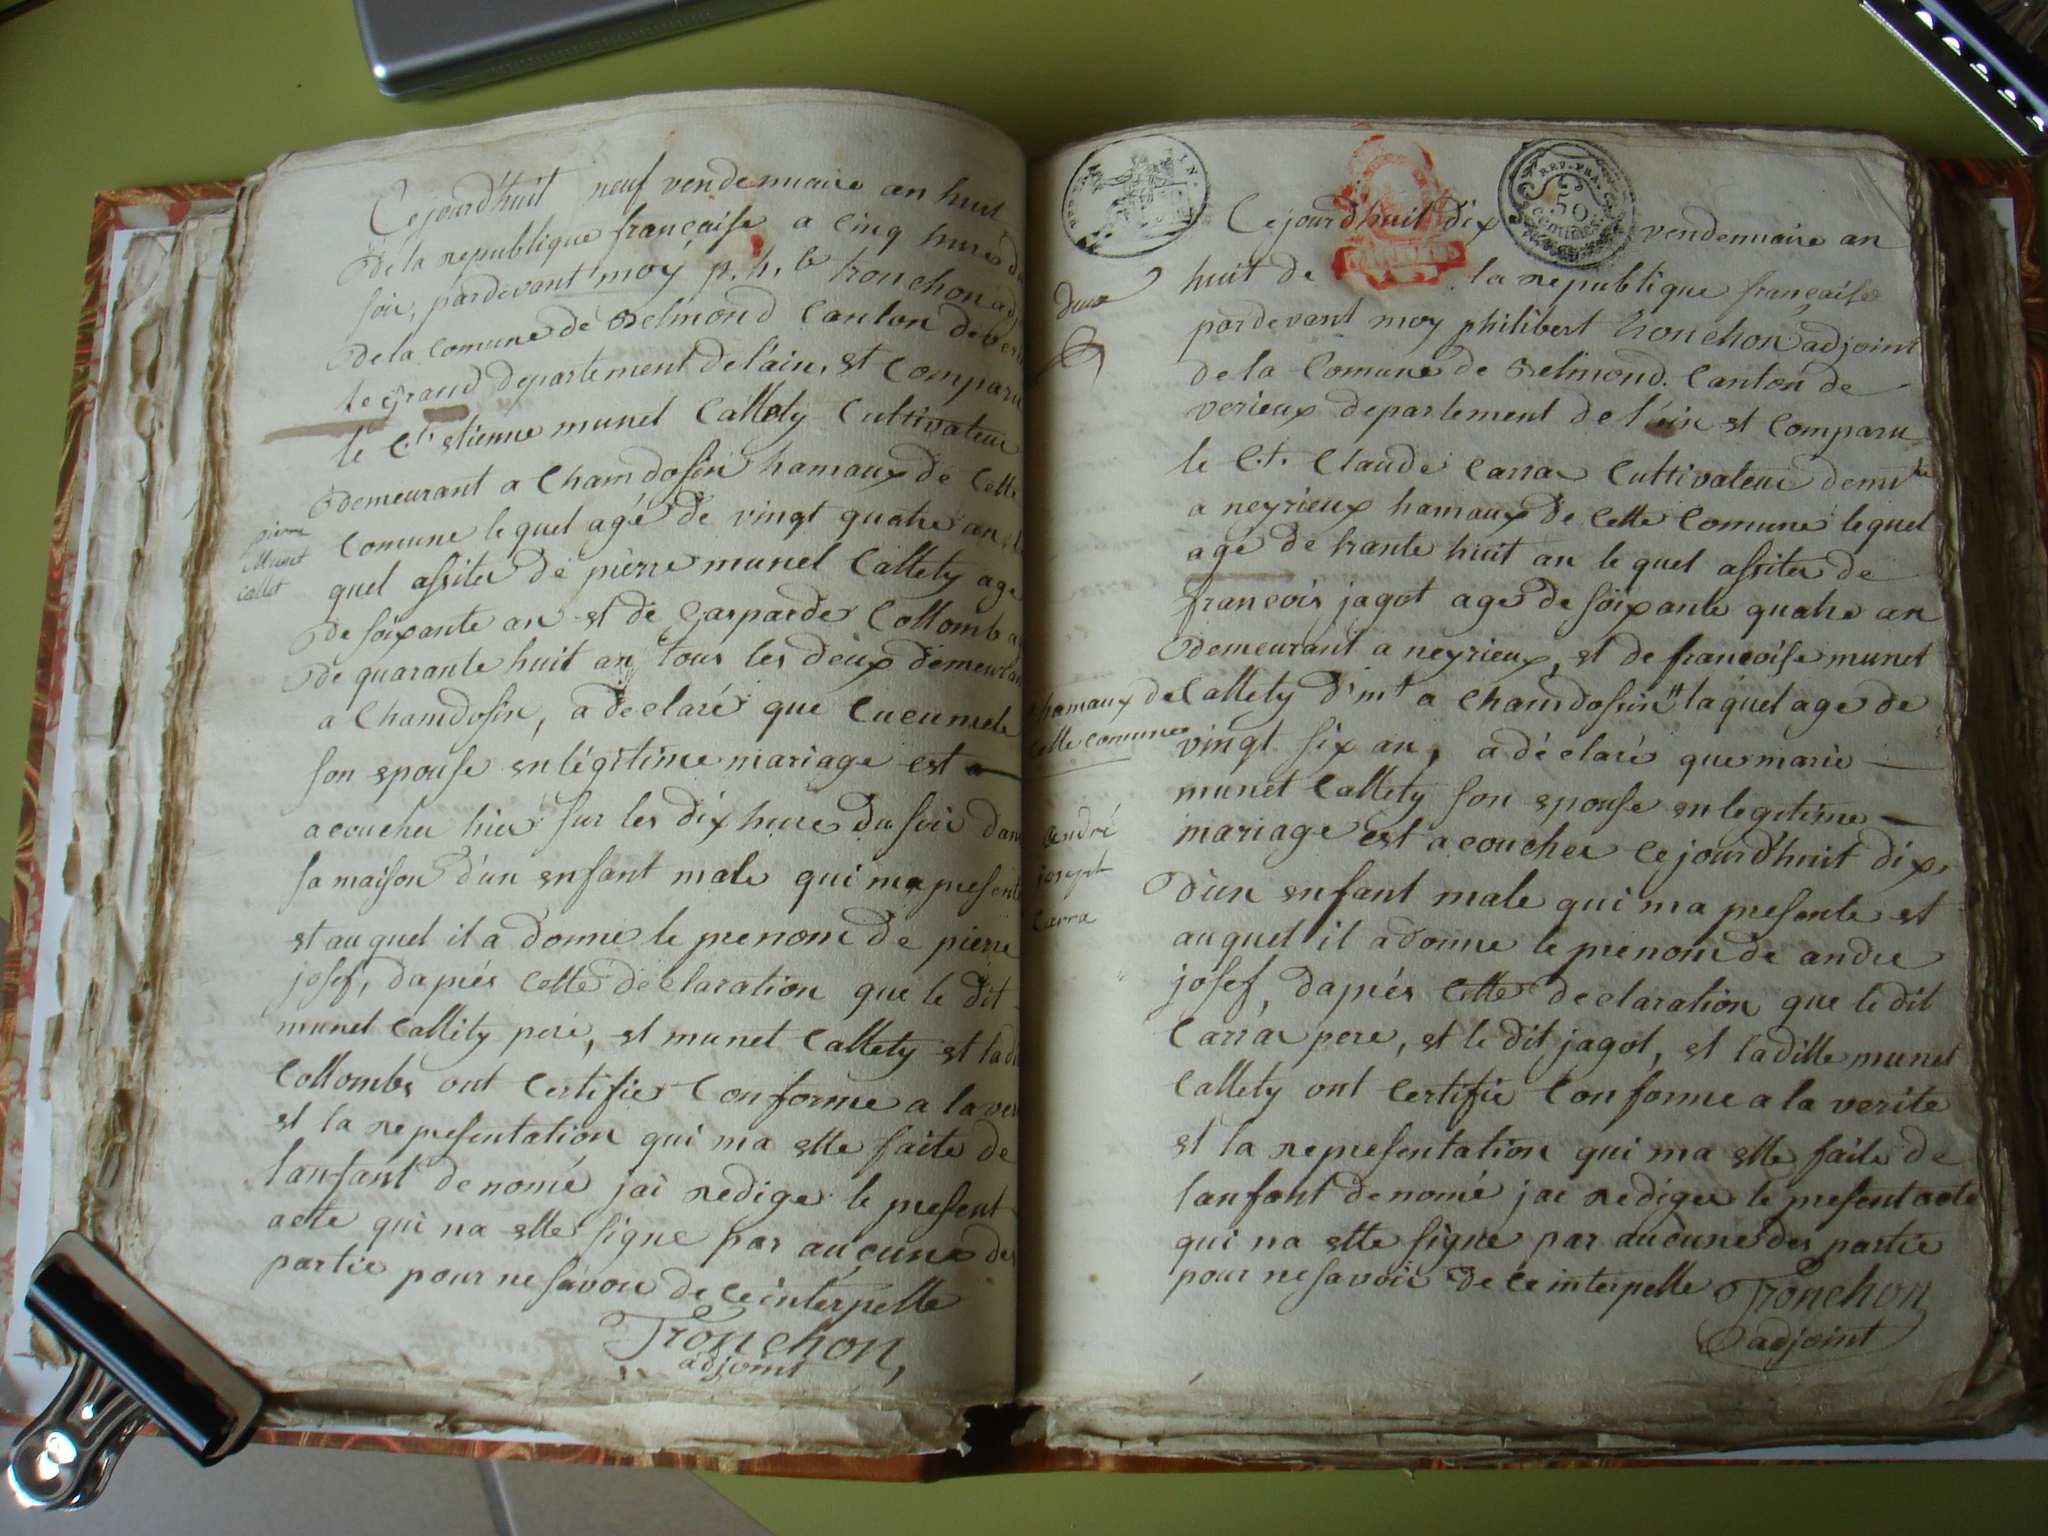 Cejourd'huit neuf vendemiaire an huit
de la republique française a cinq hure du
soir, pardevant moy p. h. b tronchon adj
de la comune de Belmond Canton de veri
le grand departement de l'ain, et comparu
le C.t etienne munet Callety Cultivateur
demeurant a Chamdosin hamaux de Cette
Comune le quel agé de vingt quatre an, le
quel assiter de pierre munet Callety age
de soixante an et de Gasparde Collomb a
de quarante huit an tous les deux demeurant
a Chamdosin, a declaré que
son epouse en légitime mariage est a
acoucher hier sur les dix hure du soir dans
sa maison d'un enfant male qui ma presente
et au quel il a donne le prenom de pierre
josef, dapiés cette declaration que le dit
munet Callity peré, et munet Callety et ladi
Collombs ont Certifie Conforme a la ver
et la representation qui ma ette faite de
lanfant denomé jai redige le present
acte qui na ette signe par aucune des
partie pour ne savoir de ce interpelle
Tronchon
adjoint
pierre
Munet
callet
BIN.
REP. FRA.
50
Centimes
Cejourd'huit dix vendemiaire an
huit de la republique française
pardevant moy philibert tronchon adjoint
de la Comune de Belmond. Canton de
verieux departement de l'ain et Comparu
le C.t. Claude Carra Cultivateur demr
a neyrieux hamaux de cette Comune lequel
age de trante huit an le quel assiter de
françois jagot age de soixante quatre an
demeurant a neyrieux, et de françoise munet
Callety d'mt a Chamdosin # laquel age de
vingt six an, a déclaré que marie
munet Callety son epouse en legitime
mariage est acoucher cejourd'huit dix,
d'un enfant male qui ma presente et
auquel il a donne le prenom de andre
josef, dapiés cette declaration que le dit
Carra pere, et le dit jagot, et ladille munet
Callety ont Certifie Conforme a la verite
et la representation qui ma ette faite de
lanfant denomé jai rediger le present acte
qui na ette signe par aucune des partie
pour ne savoir de ce interpelle Tronchon
adjoint
deux
# hamaux de
Cette comune
andré
joseph
Carra